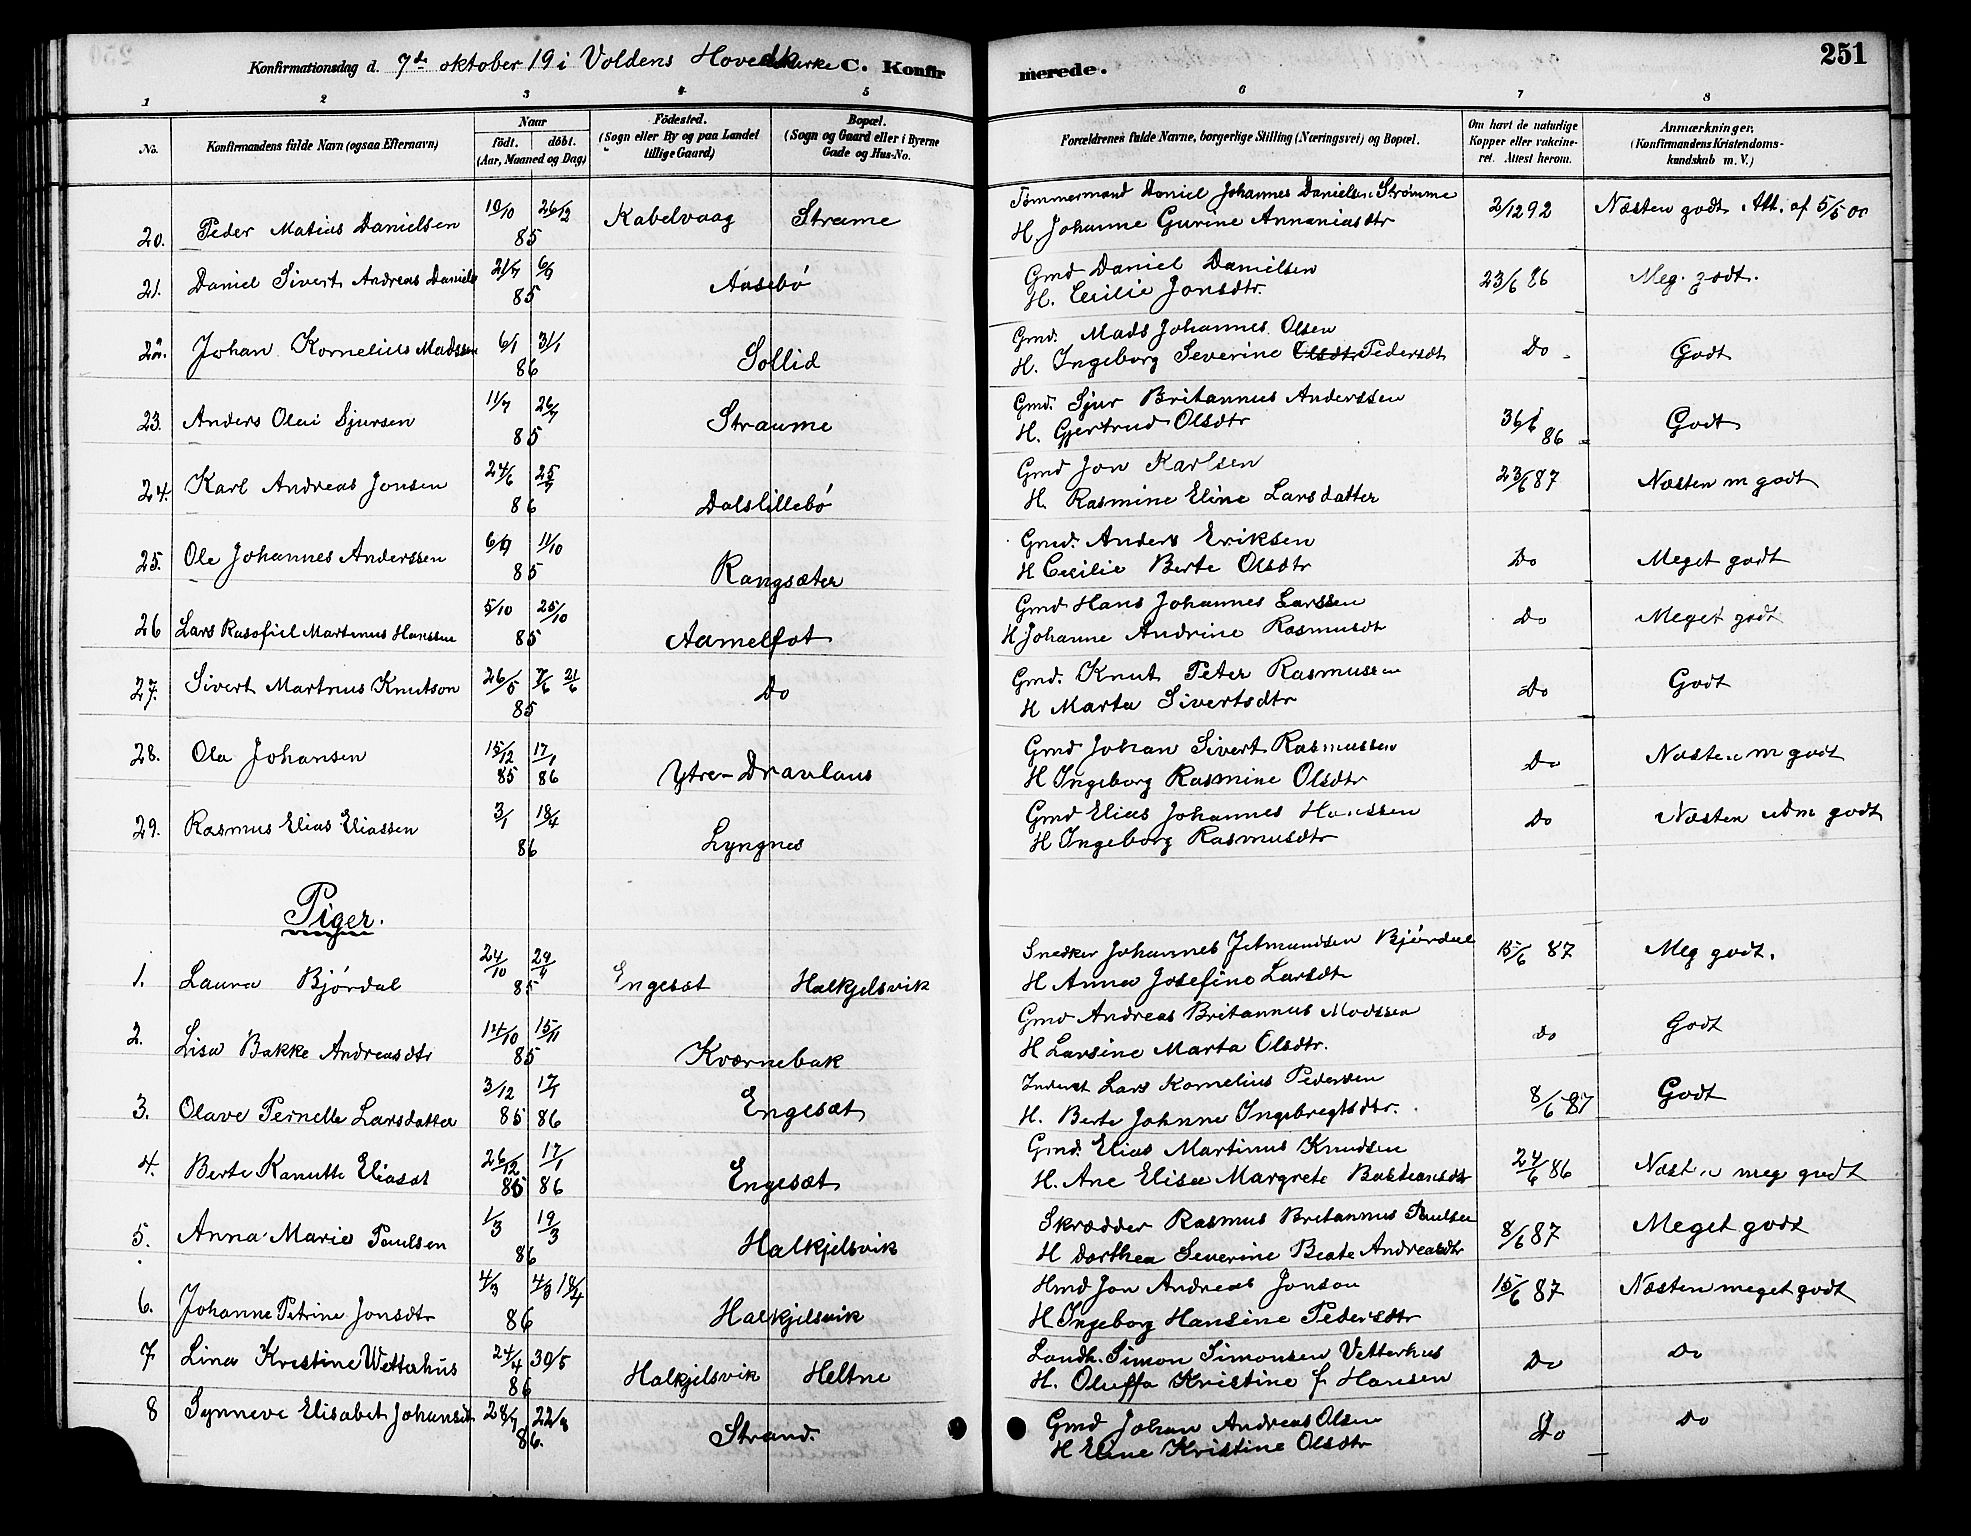 Konfirmationsdag d. 7de oktober 19 i Voldens Hovedkirke C. Konfirmerede. 251
1 2 3 4 5 6 7 8
No. Konfirmandens fulde Navn (ogsaa Efternavn) Naar födt. döbt. (Aar, Maaned og Dag) Födested. (Sogn eller By og paa Landet tillige Gaard) Bopæl. (Sogn og Gaard eller i Byerne Gade og Hus-No. Forældrenes fulde Navne, borgerlige Stilling (Næringsvei) og Bopæl. Om havt de naturlige Kopper eller vakcineret. Attest herom. Anmærkninger. (Konfirmandens Kristendomskundskab m. V.)
20. Peder Matias Danielsen 10/10 26/12 85 Kabelvaag Straume Tømmermand Daniel Johannes Danielsen Strømme 2/12 92 Næsten godt Att. af 5/5 00
H. Johanne Gurine Annaniasdtr
21. Daniel Sivert Andreas Daniels 21/7 6/9 85 Aasebö Gmd Daniel Danielsen 23/6 86 Meg. godt.
H. Cecilie Jonsdtr.
22. Johan Kornelius Madssen 6/1 31/1 86 Sollid Gmd. Mads Johannes Olsen Do Godt
H. Ingeborg Severine Olsdtr Pedersdt
23. Anders Olai Sjursen 11/7 26/7 85 Straume Gmd. Sjur Britannus Anderssen 86 Godt
H. Gjertrud Olsdtr
24. Karl Andreas Jonsen 24/6 25/7 86 Dalslillebö Gmd Jon Karlsen 23/6 87 Næsten m godt
H. Rasmine Eline Larsdatter
25. Ole Johannes Anderssen 6/9 11/10 85 Rangsæter Gmd. Anders Eriksen Do Meget godt
H Cecilie Berte Olsdtr
26 Lars Rasofiel Martinus Hanssen 5/10 25/10 85 Aamelfot Gmd Hans Johannes Larssen Do Meget godt
H Johanne Andrine Rasmusdt
27. Sivert Martnus Knutson 26/5 7/6 21/6 85 Do Gmd. Knut Peter Rasmussen Do Godt
H Marta Sivertsdtr
28. Ola Johansen 15/12 85 17/1 86 Ytre-Dravlaus Gmd Johan Sivert Rasmussen Do Næsten m godt
H Ingeborg Rasmine Olsdtr
29. Rasmus Elias Eliassen 3/1 18/4 86 Lyngnes Gmd Elias Johannes Hanssen Do Næsten udm godt
H Ingeborg Rasmusdtr
Piger.
1. Laura Björdal 24/10 85 Engesæt Halkjelsvik Snedker Johannes Jetmundsen Björdal 15/6 87 Meg godt.
H Anna Josefine Larsdt
2. Lisa Bakke Andreasdtr 14/10 15/11 85 Kværnebak Gmd Andreas Britannus Madssen Do Godt
H Larsine Marta Olsdtr.
3. Olave Pernelle Larsdatter 3/12 85 17/1 86 Engesæt Inderst Lars Kornelius Pedersen 8/6 87 Godt
H. Berte Johnne Ingebregtsdtr.
4. Berte Kanutte Eliasdt 26/12 85 17/1 86 Engesæt Gmd. Elias Martinus Knudsen 24/6 86 Næsten meg godt
H. Ane Elisa Margrete Bastiansdtr
5. Anna Marie Paulsen 1/3 19/3 86 Halkjelsvik Skrædder Rasmus Britannus Paulsen 8/6 87 Meget godt
H Dorthea Severine Beate Andreasdtr
6. Johanne Petrine Jonsdtr 4/3 4/3 18/4 86 Halkjelsvik Hmd Jon Andreas Jonson 15/6 87 Næsten meget godt
H Ingeborg Hansine Pedersdtr
7 Lina Kristine Wetterhus 24/4 30/5 86 Halkjelsvik Heltne Landh. Simon Simonsen Vetterhus Do Do
H. Oluffa Kristine f Hansen
8 Synneve Elisabet Johansdt 28/7 22/8 86. Strand. Gmd Johan Andreas Olsen Do Do
H Eline Kristine Olsdtr